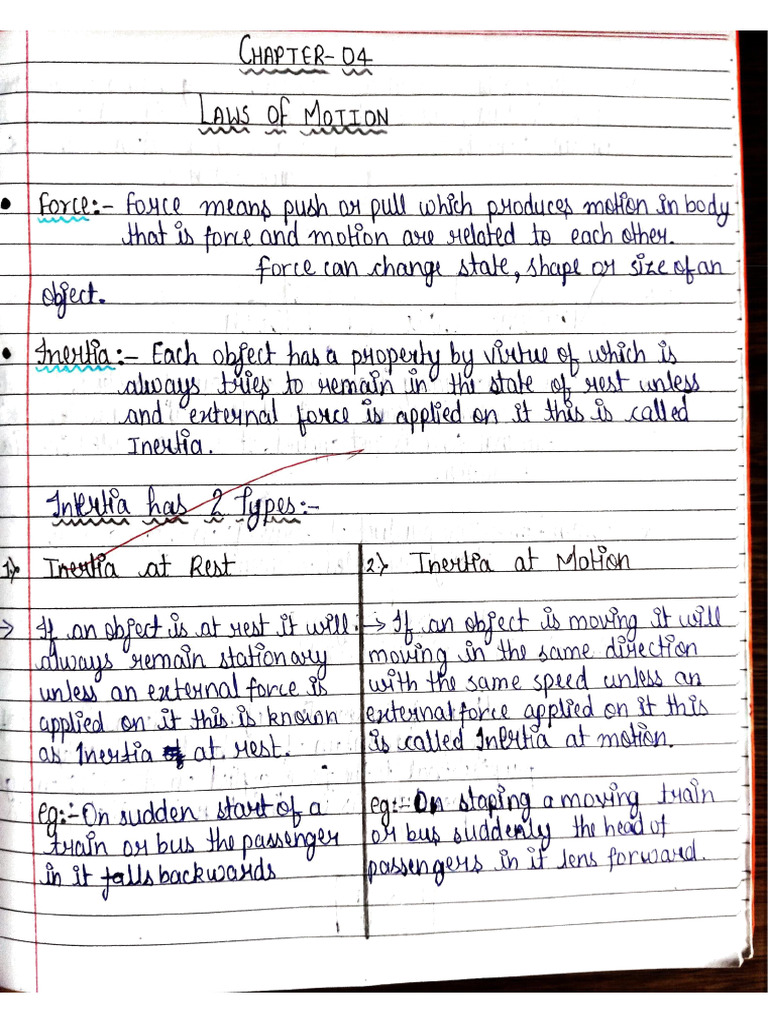 CHAPTER-04
LAWS OF MOTION
• Force:- Force means push or pull which produces motion in body
that is force and motion are related to each other.
Force can change state, shape or size of an
object.
• Inertia:- Each object has a property by virtue of which is
always tries to remain in the state of rest unless
and external force is applied on it this is called
Inertia.
Inertia has 2 Types:-
1.) Inertia at Rest
→ If an object is at rest it will
always remain stationary
unless an external force is
applied on it this is known
as Inertia at rest.
eg:- On sudden start of a
train or bus the passenger
in it falls backwards
2.) Inertia at Motion
→ If an object is moving it will
moving in the same direction
with the same speed unless an
external force applied on it this
is called Inertia at motion.
eg:- On staping a moving train
or bus suddenly the head of
passengers in it lens forward.